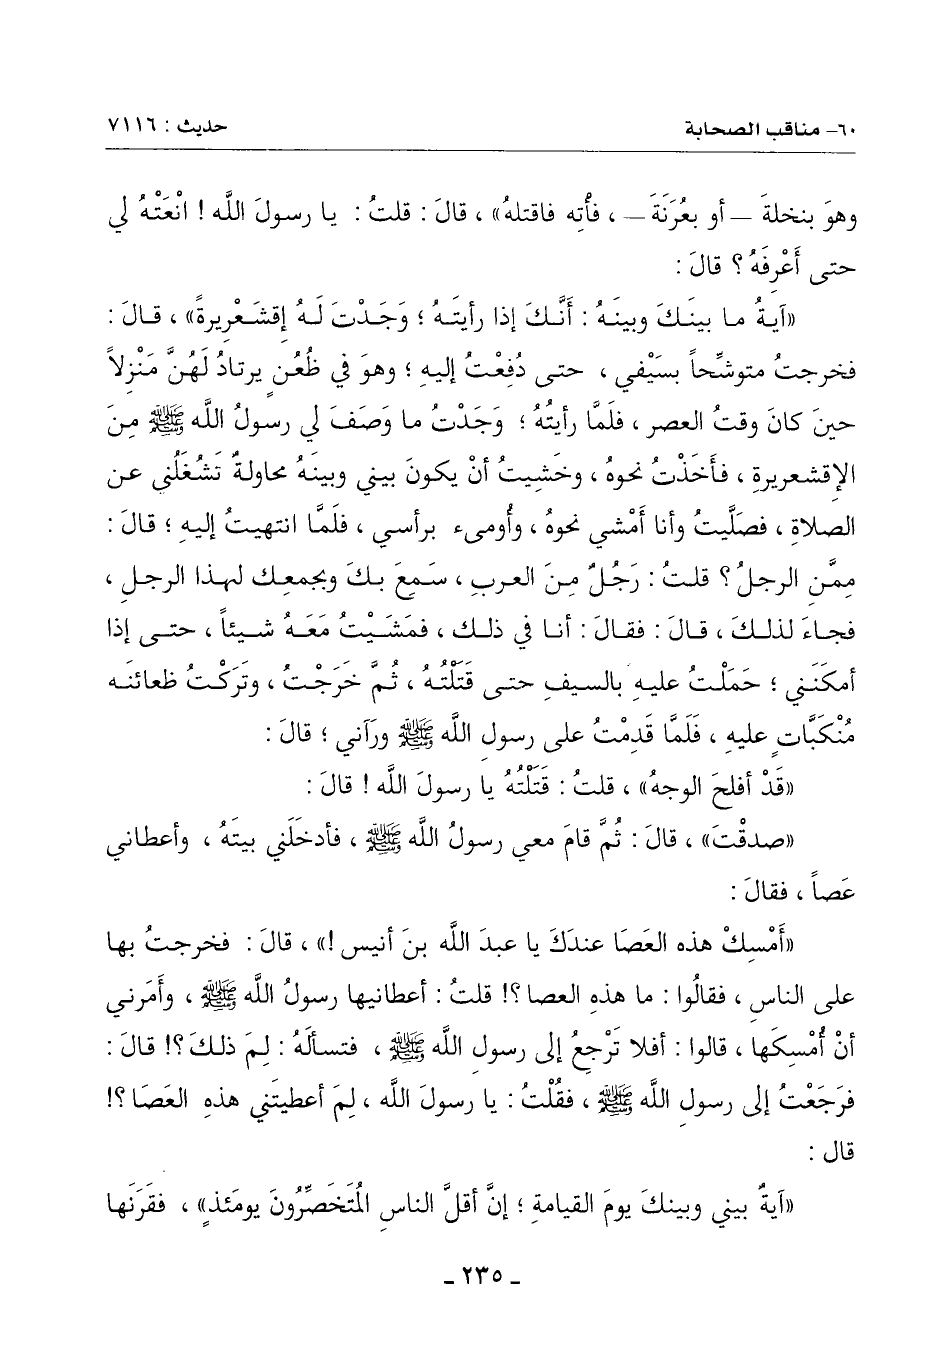 ٦٠- مناقب الصحابة حديث : ٧١١٦
وهوَ بنخلةَ – أو بعُرَنَةَ – ، فأْتِه فاقتلهُ» ، قالَ : قلتُ : يا رسولَ اللَّه ! انْعَتْهُ لي
حتى أَعْرِفَهُ ؟ قالَ :
«آيةُ ما بينَكَ وبينَهُ : أَنَّكَ إذا رأيتَهُ ؛ وَجَدْتَ لَهُ إقشَعْريرةً» ، قالَ :
فخرجتُ متوشِّحاً بسَيْفي ، حتى دُفِعْتُ إليهِ ؛ وهوَ في ظُعُنٍ يرتادُ لَهُنَّ مَنْزِلاً
حينَ كانَ وقتُ العصرِ ، فلَمَّا رأيتُهُ ؛ وَجَدْتُ ما وَصَفَ لي رسولُ اللَّه ﷺ مِنَ
الإقشعريرةِ ، فأَخَذْتُ نحوهُ ، وخَشِيتُ أنْ يكونَ بيني وبينَهُ محاولةٌ تَشْغَلُني عن
الصلاةِ ، فصَلَّيتُ وأنا أَمْشي نحوهُ ، وأُومىء برأسي ، فلَمَّا انتهيتُ إليهِ ؛ قالَ :
ممَّن الرجلُ ؟ قلتُ : رَجُلٌ مِنَ العربِ ، سَمِعَ بكَ وبجمعِك لهذا الرجلِ ،
فجاءَ لذلكَ ، قالَ : فقالَ : أنا في ذلك ، فمَشَيْتُ مَعَهُ شيئاً ، حتى إذا
أمكَنَني ؛ حَمَلْتُ عليهِ بالسيفِ حتى قَتَلْتُهُ ، ثُمَّ خَرَجْتُ ، وتَرَكْتُ ظعائنَه
مُنْكَبَّاتٍ عليهِ ، فَلَمَّا قَدِمْتُ على رسولِ اللَّه ﷺ ورَآني ؛ قالَ :
«قَدْ أفلحَ الوجهُ» ، قلتُ : قَتَلْتُهُ يا رسولَ اللَّه ! قالَ :
«صدقْتَ» ، قالَ : ثُمَّ قامَ معي رسولُ اللَّه ﷺ ، فأدخَلَني بيتَهُ ، وأعطاني
عَصاً ، فقالَ :
«أَمْسِكْ هذه العَصَا عندَكَ يا عبدَ اللَّه بنَ أنيس !» ، قالَ : فخرجتُ بها
على الناسِ ، فقالُوا : ما هذهِ العصا ؟! قلتُ : أعطانيها رسولُ اللَّه ﷺ ، وأَمَرني
أنْ أُمْسِكَها ، قالوا : أفلا تَرْجِعُ إلى رسولِ اللَّه ﷺ ، فتسألَهُ : لِمَ ذلكَ ؟! قالَ :
فرَجَعْتُ إلى رسولِ اللَّه ﷺ ، فقُلْتُ : يا رسولَ اللَّه ، لِمَ أعطيتَني هذهِ العَصَا ؟!
قال :
«آيةٌ بيني وبينكَ يومَ القيامةِ ؛ إنَّ أقلَّ الناسِ المُتَخَصِّرُونَ يومَئذٍ» ، فقَرَنَها
- ٢٣٥ -